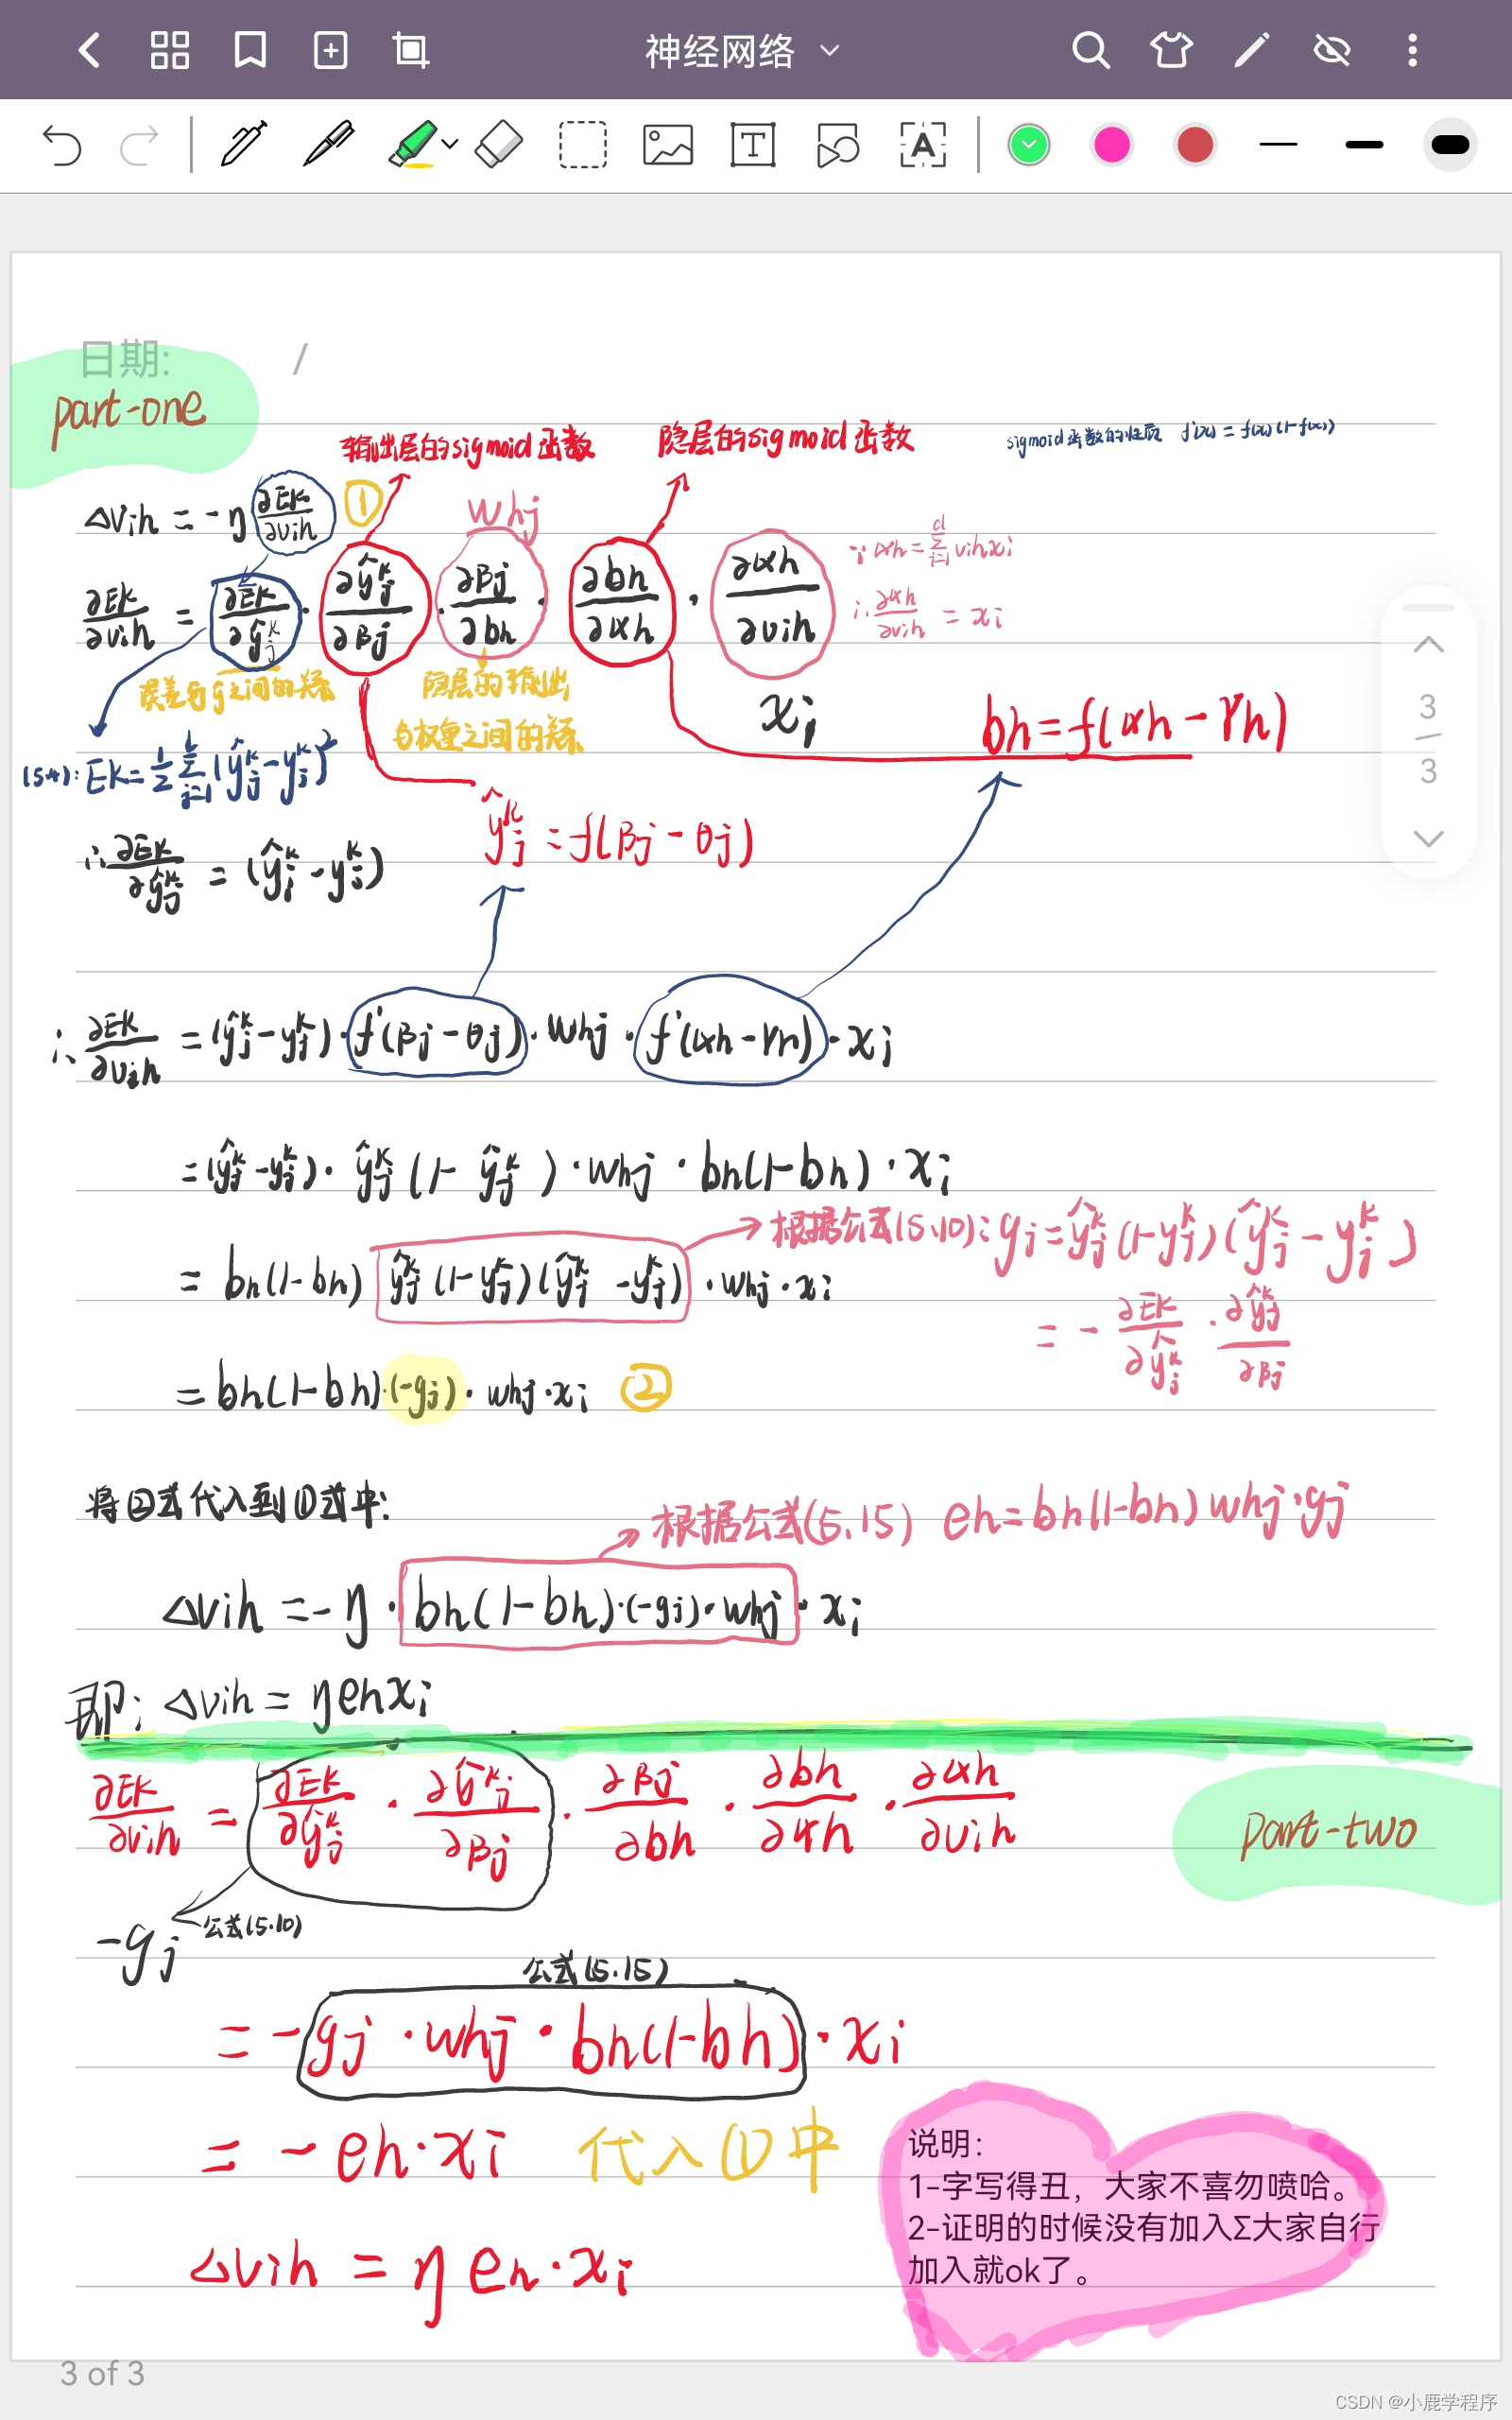 神经网络
日期: /
part-one
输出层的sigmoid函数
隐层的sigmoid函数
sigmoid函数的性质 f'(x) = f(x)(1-f(x))
△Vih = -η ∂Ek/∂vih ①
whj
∂Ek/∂vih = ∂Ek/∂ŷjᵏ · ∂ŷjᵏ/∂βj · ∂βj/∂bh · ∂bh/∂αh · ∂αh/∂vih
∵ αh = Σ(i=1..d) vih xi
∴ ∂αh/∂vih = xi
误差与ŷ之间的关系
隐层的输出
与权重之间的关系
xi
bh = f(αh - γh)
(5.4): Ek = ½ Σ(j=1..l) (ŷjᵏ - yjᵏ)²
ŷjᵏ = f(βj - θj)
∴ ∂Ek/∂ŷjᵏ = (ŷjᵏ - yjᵏ)
∴ ∂Ek/∂vih = (ŷjᵏ - yjᵏ) · f'(βj - θj) · whj · f'(αh - γh) · xi
= (ŷjᵏ - yjᵏ) · ŷjᵏ (1 - ŷjᵏ) · whj · bh(1-bh) · xi
→ 根据公式(5.10): gj = ŷjᵏ (1-yjᵏ)(ŷjᵏ - yjᵏ)
= bh(1-bh) ŷjᵏ (1-yjᵏ)(ŷjᵏ - yjᵏ) · whj · xi
= - ∂Ek/∂ŷjᵏ · ∂ŷjᵏ/∂βj
= bh(1-bh)·(-gj) · whj · xi ②
将②式代入到①式中:
→ 根据公式(5.15) eh = bh(1-bh) whj · gj
△vih = -η · bh(1-bh)·(-gj)·whj · xi
即: △vih = η eh xi
∂Ek/∂vih = ∂Ek/∂ŷjᵏ · ∂ŷjᵏ/∂βj · ∂βj/∂bh · ∂bh/∂αh · ∂αh/∂vih
part-two
-gj 公式(5.10)
公式(5.15)
= -gj · whj · bh(1-bh) · xi
= -eh · xi 代入①中
△vih = η eh · xi
说明:
1-字写得丑，大家不喜勿喷哈。
2-证明的时候没有加入Σ大家自行
加入就ok了。
3
3
3 of 3
CSDN @小鹿学程序